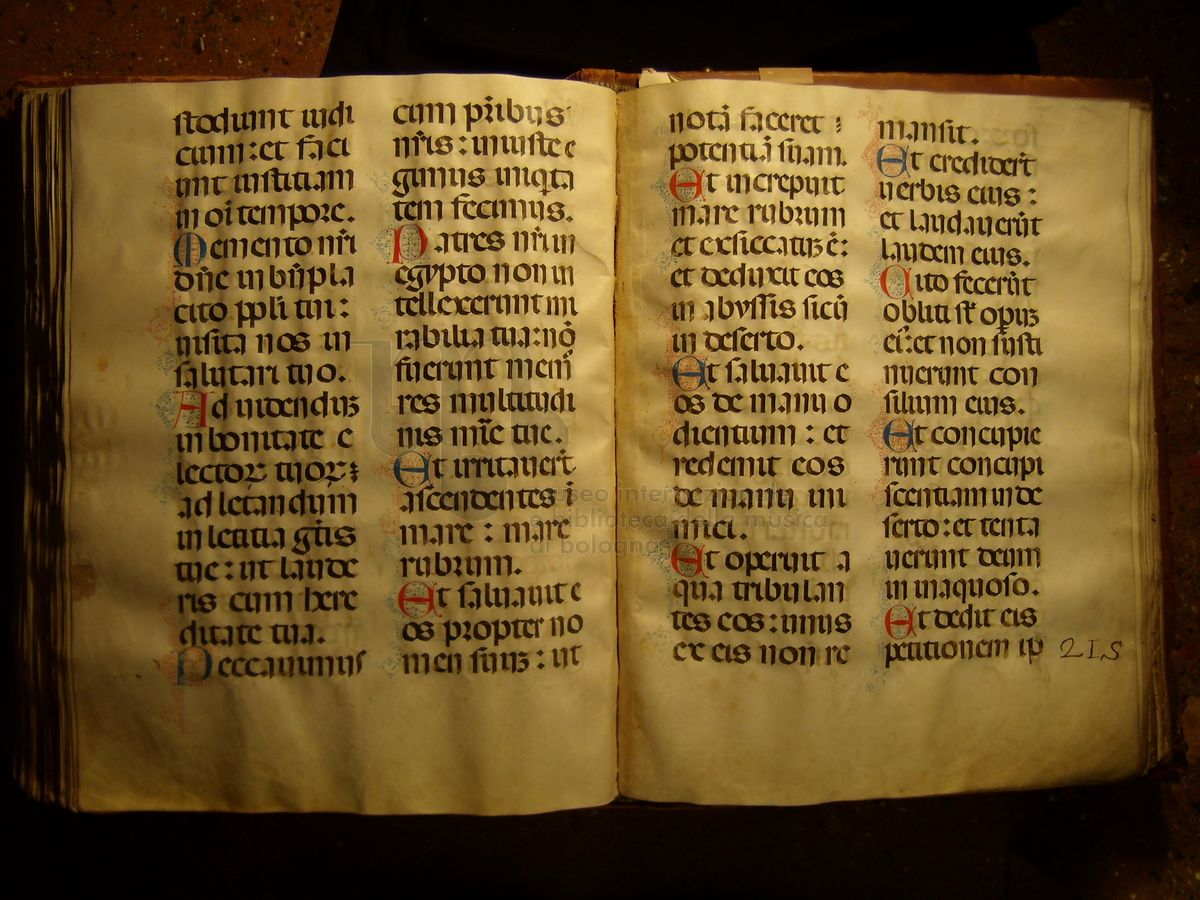 stodiunt iudi
cium : et faci
unt iustitiam
in oī tempore.
Memento nr̄i
dn̄e in bn̄pla
cito ppl̄i tui :
uisita nos in
salutari tuo.
Ad uidendūꝫ
in bonitate e
lectoꝝ tuoꝝ :
ad letandum
in letitia gētis
tue : ut laude
ris cum here
ditate tua.
Peccauimus
cum pr̄ibus
nr̄is : iniuste e
gimus iniq̄ta
tem fecimus.
Patres nr̄i in
egypto non in
tellexerunt mi
rabilia tua : nō
fuerunt memō
res multitudi
nis mīe tue.
Et irritauerūt
ascendentes ī
mare : mare
rubrum.
Et saluauit e
os propter no
men suuꝫ : ut
notā faceret :
potentiā suam.
Et increpuit
mare rubrum
et exsiccatuꝫ ē :
et deduxit eos
in abyssis sicū
in deserto.
Et saluauit e
os de manu o
dientium : et
redemit eos
de manu ini
mici.
Et operuit a
qua tribulan
tes eos : unus
ex eis non re
mansit.
Et crediderūt
uerbis eius :
et laudauerūt
laudem eius.
Cito fecerūt
obliti st̄ opeꝝ
ei⁹ : et non susti
nuerunt con
silium eius.
Et concupie
runt concupi
scentiam in de
serto : et tenta
uerunt deum
in inaquoso.
Et dedit eis
petitionem ip
215
museo internazionale
e biblioteca della musica
di bologna